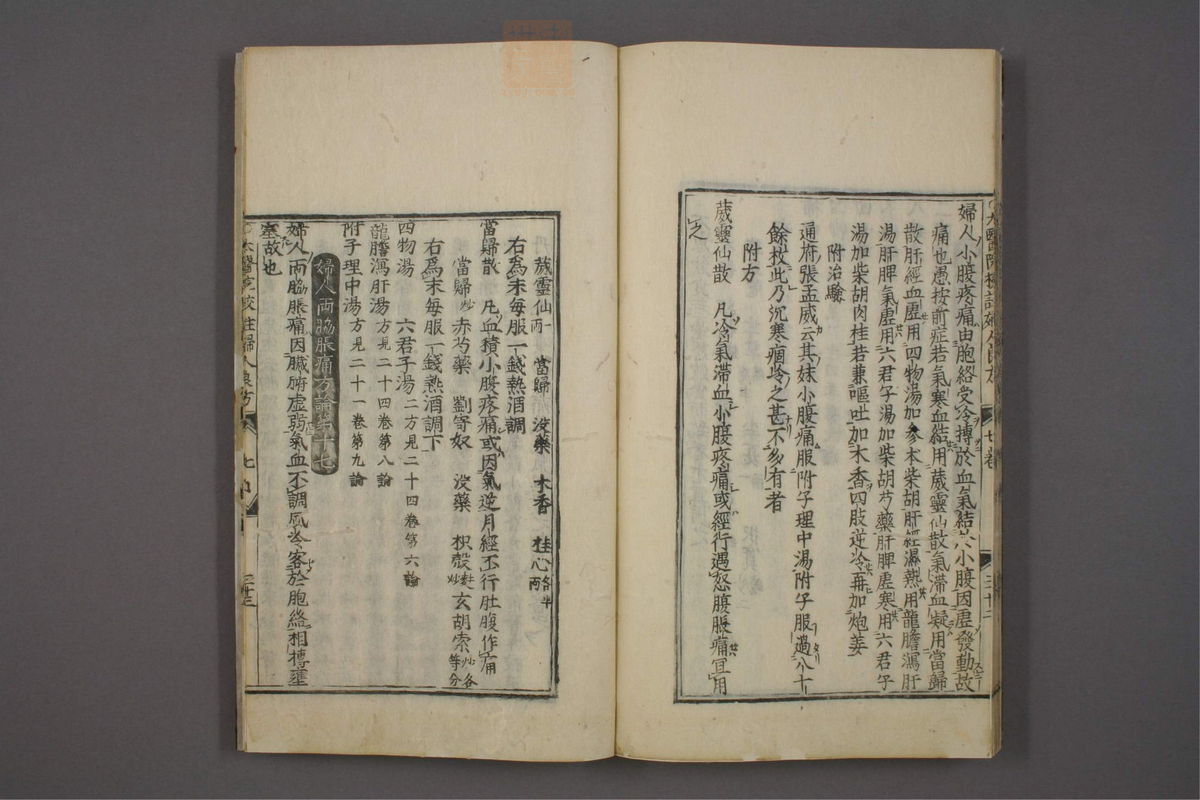 婦人小腹疼痛由胞絡受冷搏於血氣結於小腹因虛發動故
痛也愚按前症若氣寒血結用葳靈仙散氣滯血凝用當歸
散肝經血虛用四物湯加參朮柴胡肝經濕熱用龍膽瀉肝
湯肝脾氣虛用六君子湯加柴胡芍藥肝脾虛寒用六君子
湯加柴胡肉桂若兼嘔吐加木香四肢逆冷再加炮姜
附治驗
通府張孟威云其妹小腹痛服附子理中湯附子服過八十
餘枚此乃沉寒痼冷之甚不多有者
附方
葳靈仙散 凡冷氣滯血小腹疼痛或經行遇怒腹脹痛宜用
之
葳靈仙一兩 當歸 沒藥 木香 桂心各半兩
右為末每服一錢熱酒調
當歸散 凡血積小腹疼痛或因氣逆月經不行肚腹作痛
當歸炒 赤芍藥 劉寄奴 沒藥 枳殼麩炒 玄胡索炒各等分
右為末每服一錢熱酒調下
四物湯 六君子湯二方見二十四卷第六論
龍膽瀉肝湯方見二十四卷第八論
附子理中湯方見二十一卷第九論
婦人兩脇脹痛方論第十七
婦人兩脇脹痛因臟腑虛弱氣血不調風冷客於胞絡相摶壅
塞故也